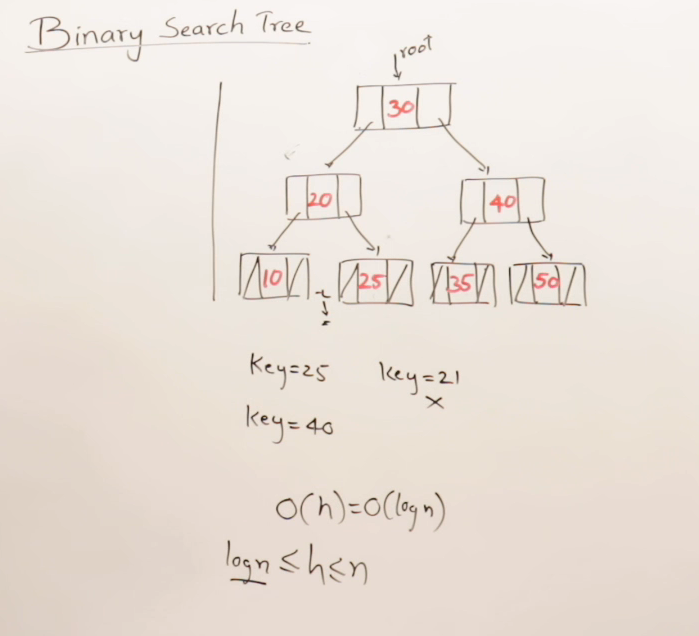 Binary Search Tree
root
30
20 40
10 25 35 50
Key=25 Key=21
×
Key=40
O(h)=O(logn)
logn ≤ h ≤ n